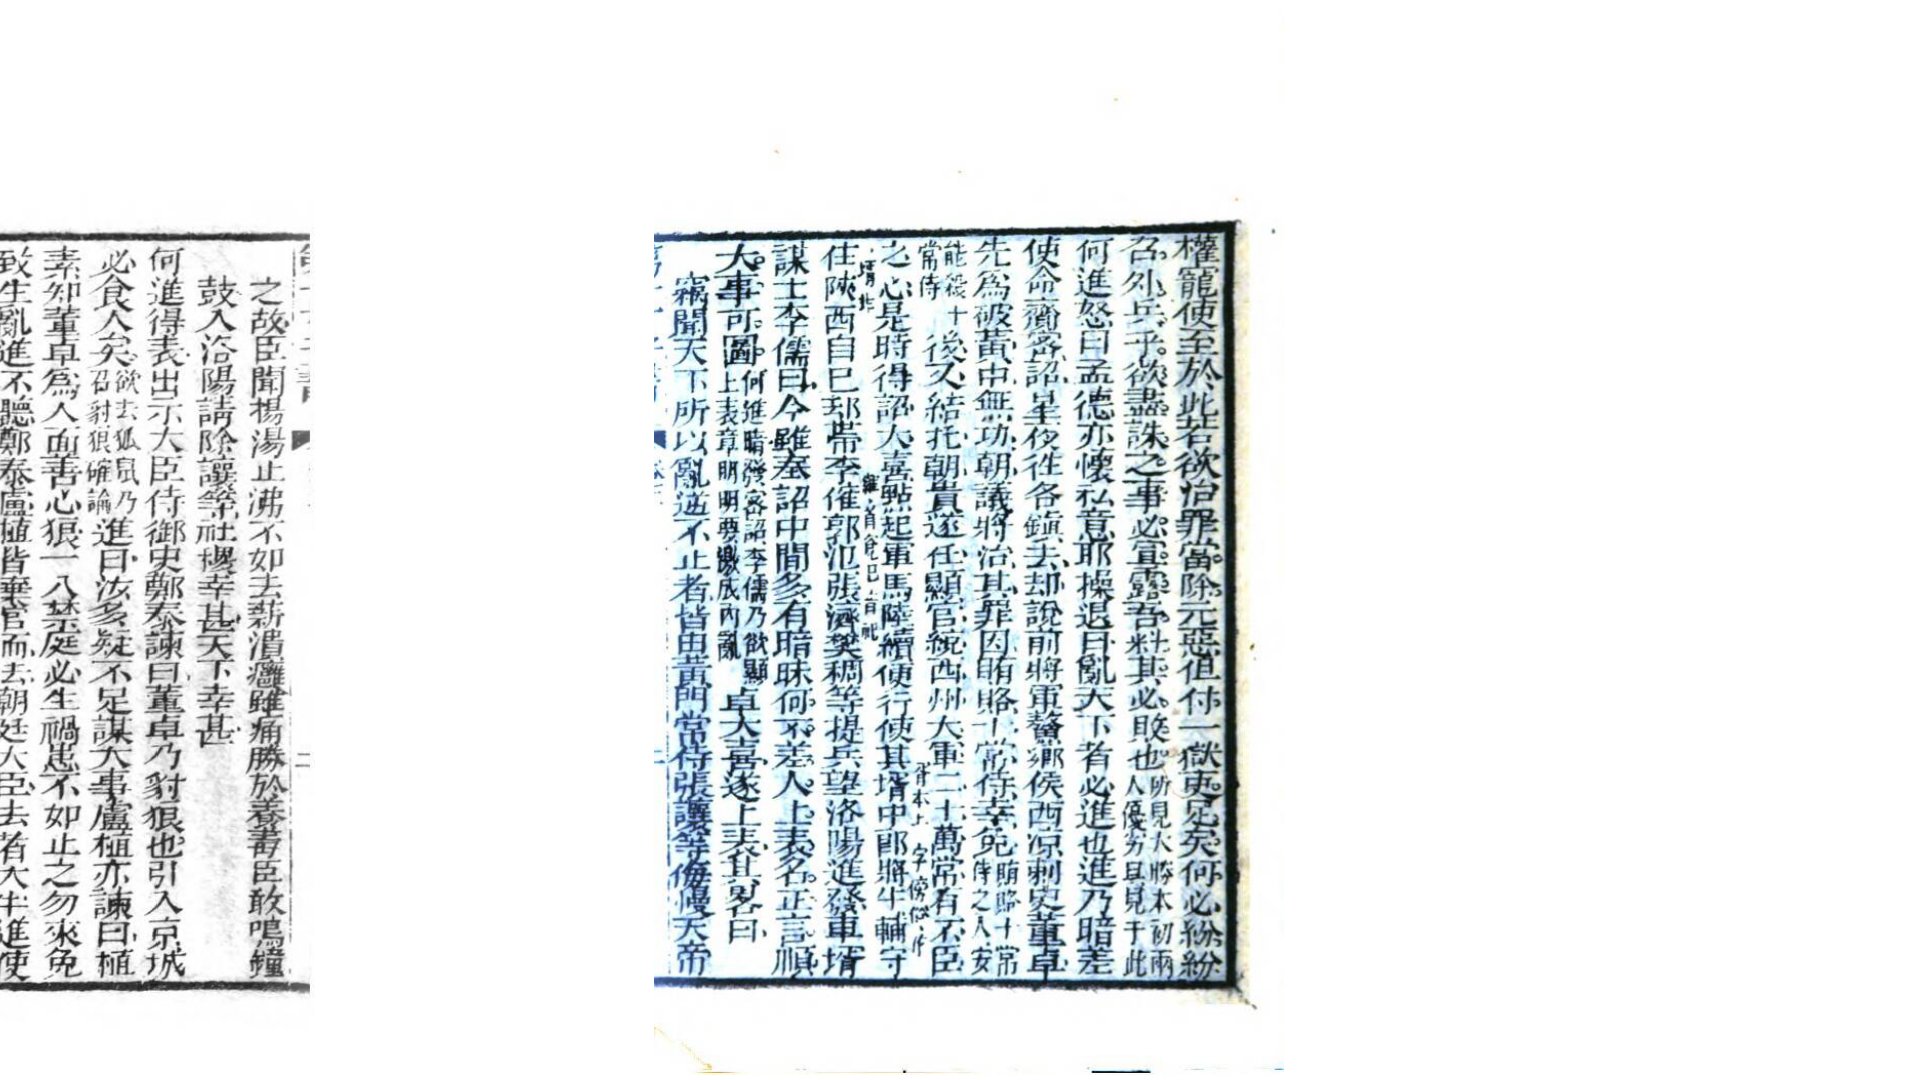 權寵使至於此若欲治罪當除元惡但付一獄吏足矣何必紛紛
召外兵乎欲盡誅之事必宣露吾料其必敗也所見大勝本初兩人優劣且見于此
何進怒曰孟德亦懷私意耶操退曰亂天下者必進也進乃暗差
使命齎密詔星夜往各鎮去却說前將軍鰲鄉侯西凉刺史董卓
先爲破黃巾無功朝議將治其罪因賄賂十常侍幸免賄賂十常侍之人安
能殺十常侍後又結托朝貴遂任顯官統西州大軍二十萬常有不臣
之心是時得詔大喜點起軍馬陸續便行使其壻中郎將牛輔守
住陝西自己却帶李傕郭氾張濟樊稠等提兵望洛陽進發卓壻
謀士李儒曰今雖奉詔中間多有暗昧何不差人上表名正言順
大事可圖何進暗發密詔李儒乃欲顯上表章明明要激成內亂卓大喜遂上表其畧曰
竊聞天下所以亂逆不止者皆由黃門常侍張讓等侮慢天帝
之故臣聞揚湯止沸不如去薪潰癰雖痛勝於養毒臣敢鳴鐘
鼓入洛陽請除讓等社稷幸甚天下幸甚
何進得表出示大臣侍御史鄭泰諫曰董卓乃豺狼也引入京城
必食人矣欲去狐鼠乃召豺狼確論進曰汝多疑不足謀大事盧植亦諫曰植
素知董卓爲人面善心狠一入禁庭必生禍患不如止之勿來免
致生亂進不聽鄭泰盧植皆棄官而去朝廷大臣去者大半進使